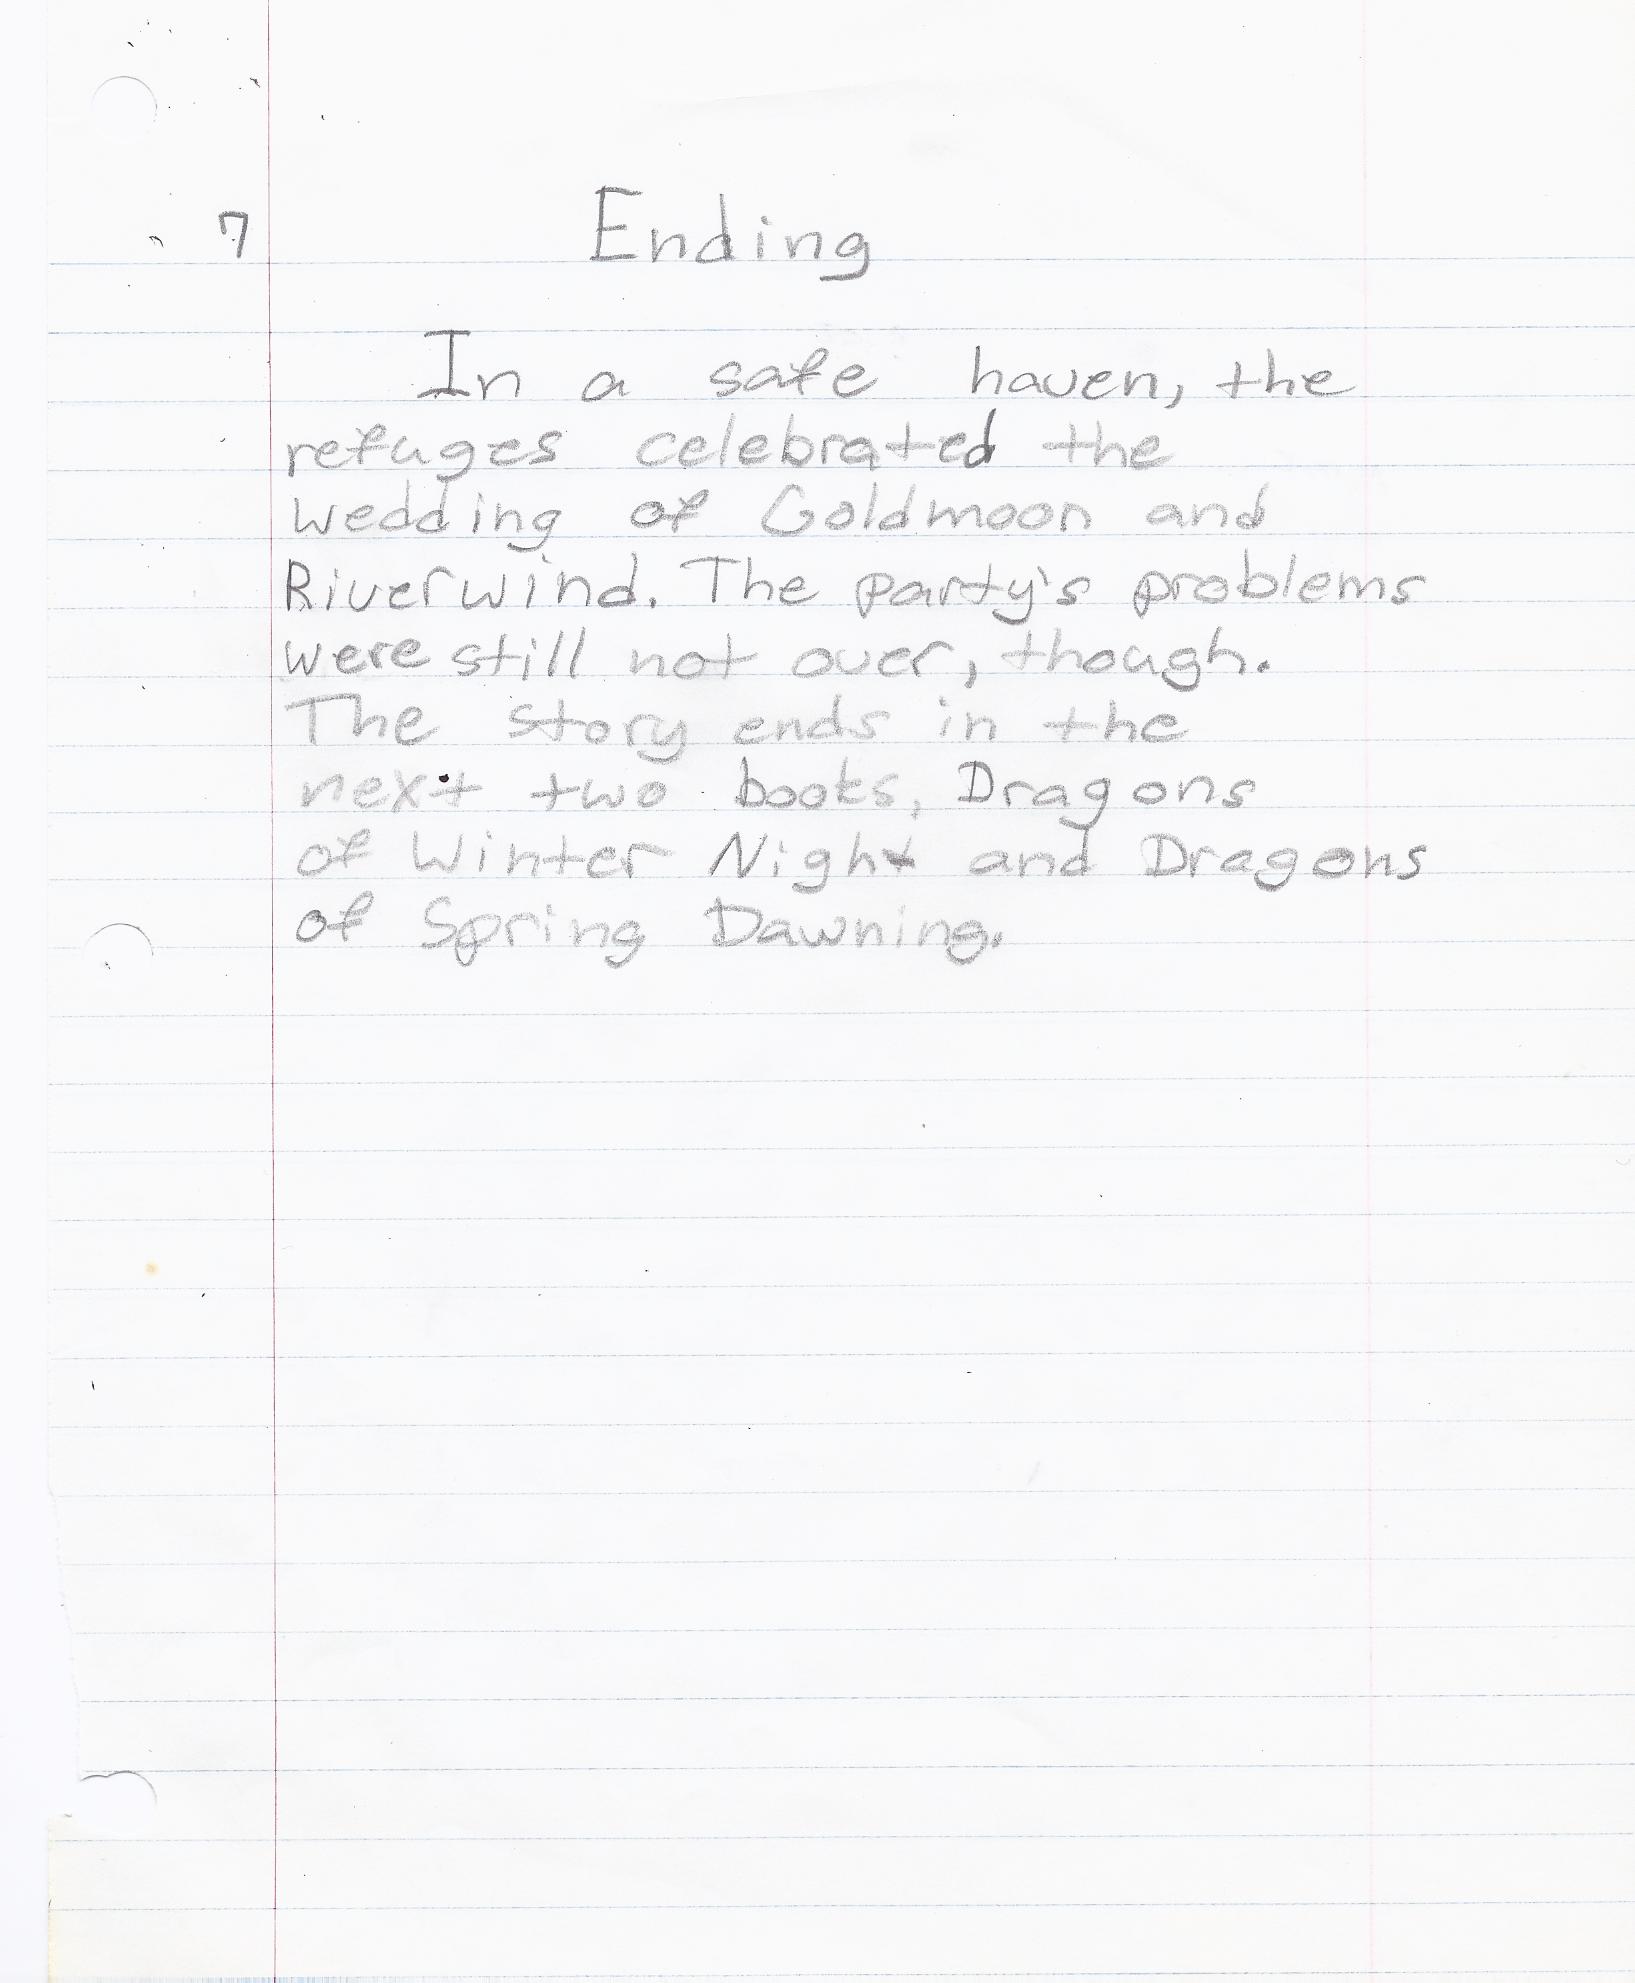 7 Ending
In a safe haven, the
refuges celebrated the
wedding of Goldmoon and
Riverwind. The party's problems
were still not over, though.
The story ends in the
next two books, Dragons
of Winter Night and Dragons
of Spring Dawning.